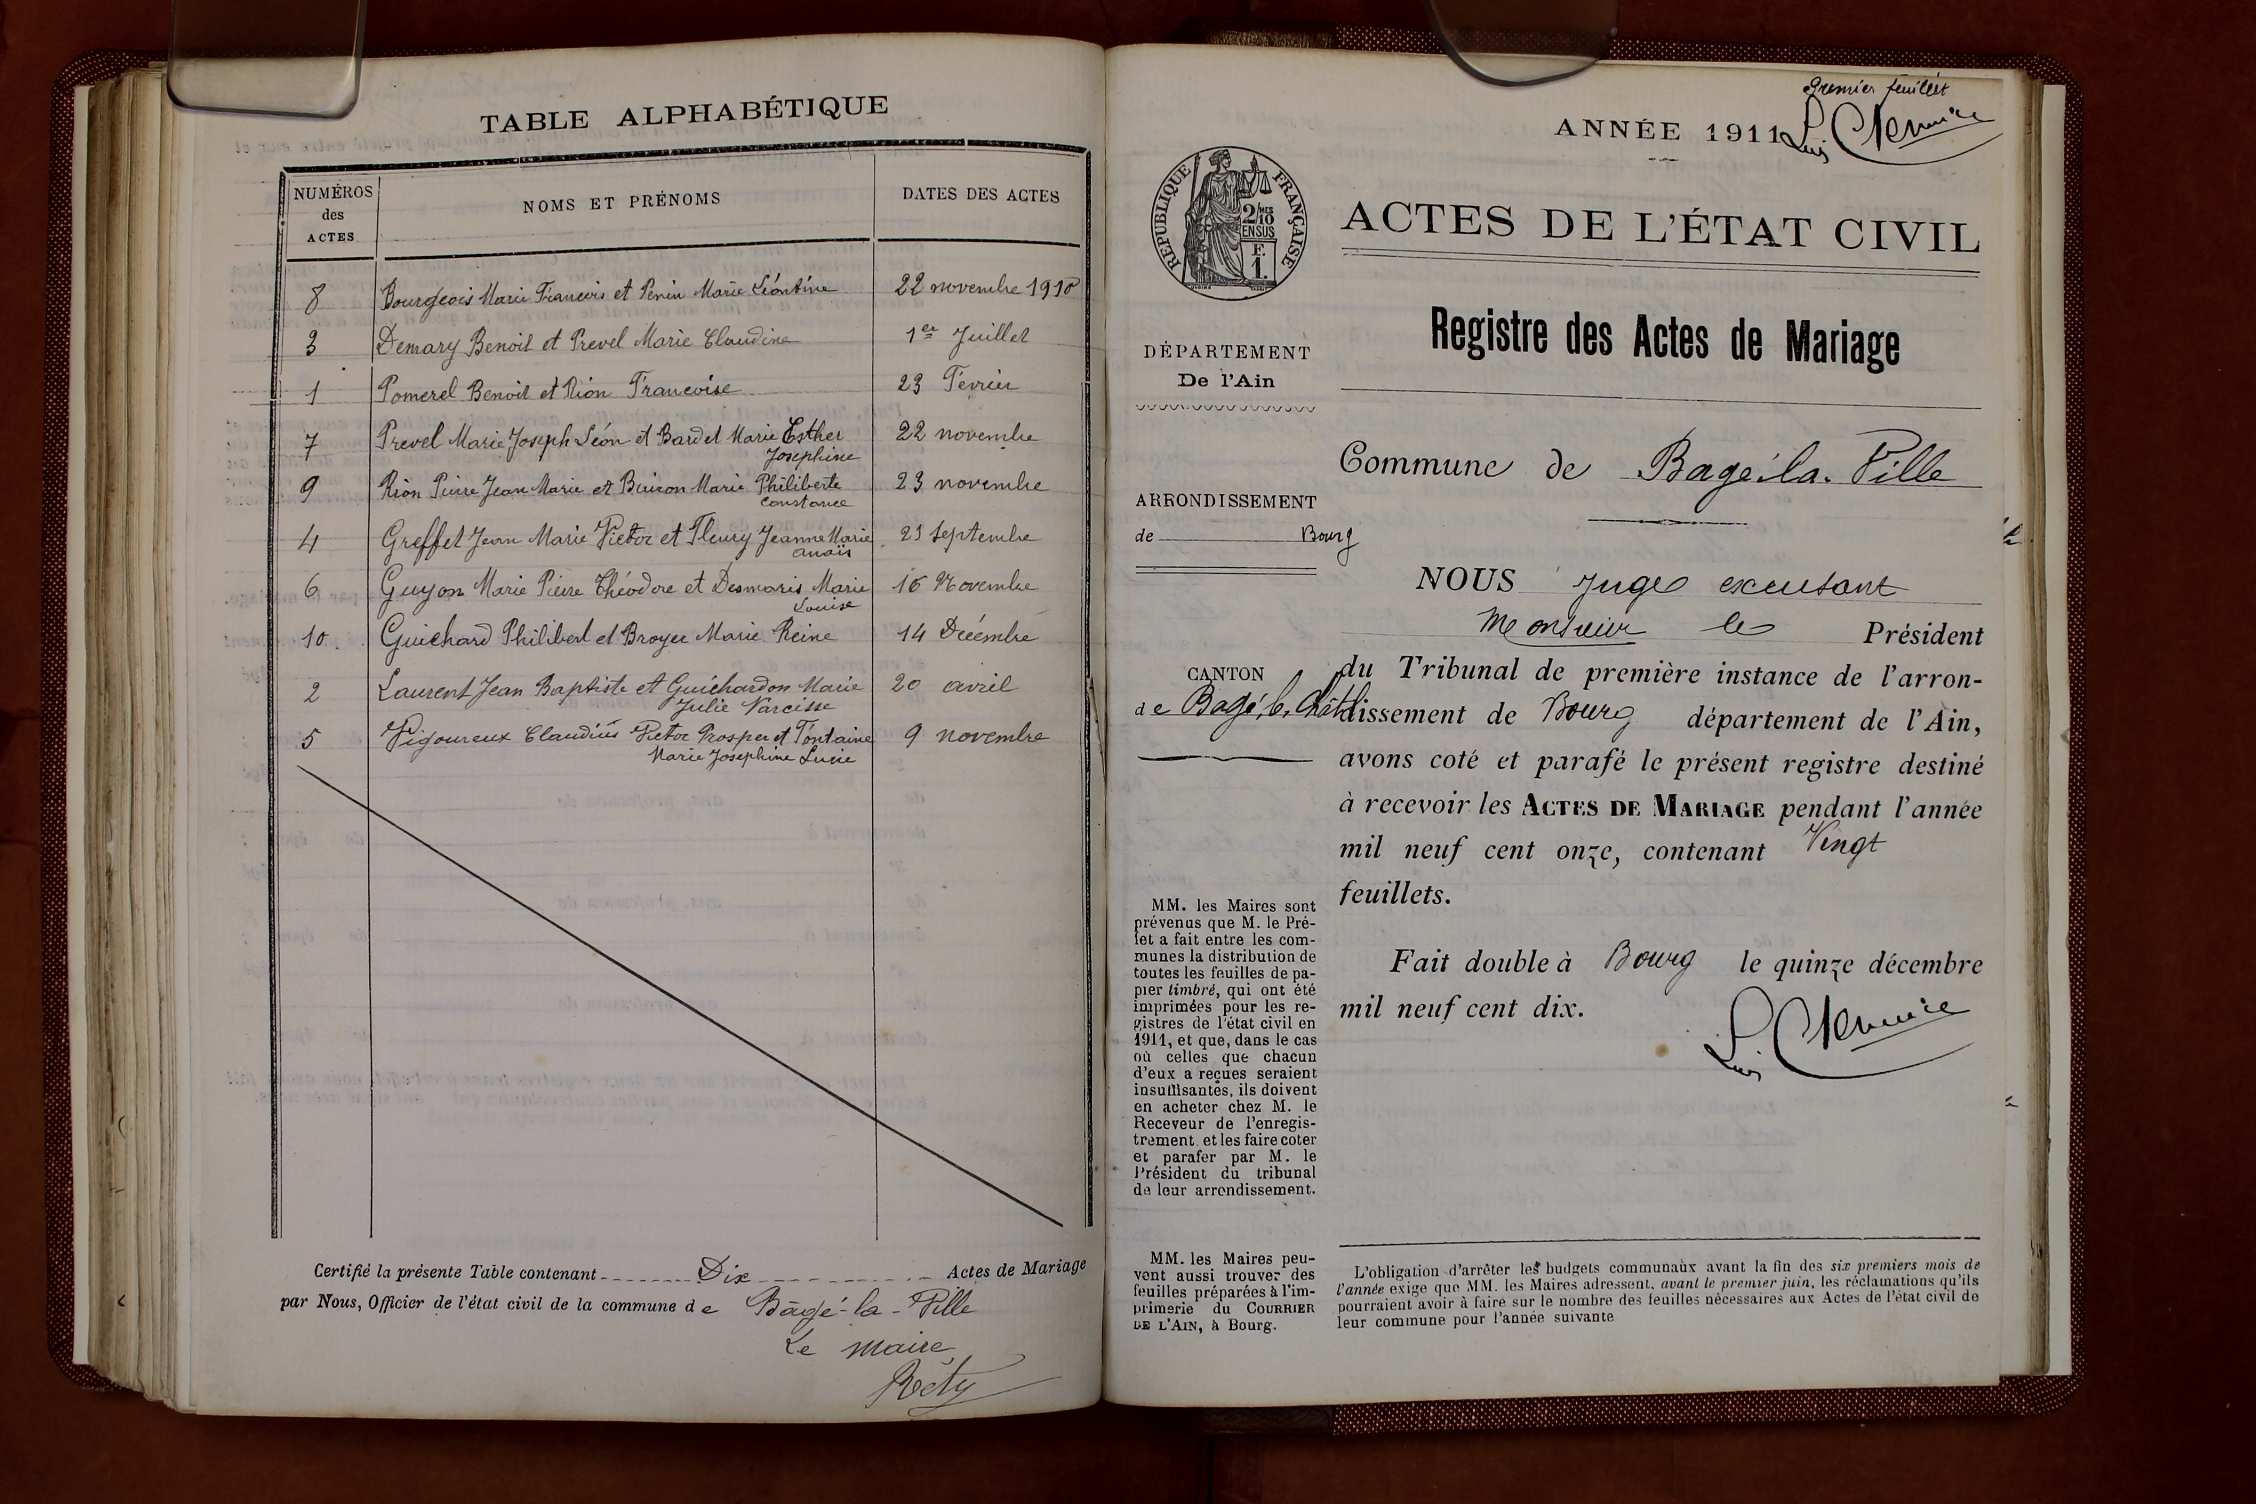 TABLE ALPHABÉTIQUE
NUMÉROS des ACTES NOMS ET PRÉNOMS DATES DES ACTES
8 Bourgeois Marie François et Penin Marie Léontine 22 novembre 1910
3 Demary Benoit et Prevel Marie Claudine 1er Juillet
1 Pomerel Benoit et Rion Francoise 23 Février
7 Prevel Marie Joseph Léon et Bardet Marie Esther 22 novembre
Josephine
9 Rion Pierre Jean Marie et Buiron Marie Philiberte 23 novembre
Constance
4 Greffet Jean Marie Victor et Fleury Jeanne Marie 21 Septembre
anaïs
6 Guyon Marie Pierre Théodore et Desmaris Marie 16 Novembre
Louise
10 Guichard Philibert et Broyer Marie Reine 14 Décembre
2 Laurent Jean Baptiste et Guichardon Marie 20 avril
Julie Narcisse
5 Vigoureux Claudius Victor Prosper et Fontaine 9 novembre
Marie Josephine Lucie
Certifié la présente Table contenant Dix Actes de Mariage
par Nous, Officier de l'état civil de la commune de Bâgé-la-Ville
Le maire
Réty
premier feuillet
ANNÉE 1911
RÉPUBLIQUE FRANÇAISE
2/10MES
EN SUS
F.
1.
ACTES DE L'ÉTAT CIVIL
Registre des Actes de Mariage
DÉPARTEMENT
De l'Ain
Commune de Bagé-la-Ville
ARRONDISSEMENT
de Bourg
NOUS Juge excusant
Monsieur le Président
CANTON
de Bagé-le-Châtel
du Tribunal de première instance de l'arron-
dissement de Bourg département de l'Ain,
avons coté et parafé le présent registre destiné
à recevoir les ACTES DE MARIAGE pendant l'année
mil neuf cent onze, contenant Vingt
feuillets.
Fait double à Bourg le quinze décembre
mil neuf cent dix.
MM. les Maires sont
prévenus que M. le Pré-
fet a fait entre les com-
munes la distribution de
toutes les feuilles de pa-
pier timbré, qui ont été
imprimées pour les re-
gistres de l'état civil en
1911, et que, dans le cas
où celles que chacun
d'eux a reçues seraient
insuffisantes, ils doivent
en acheter chez M. le
Receveur de l'enregis-
trement et les faire coter
et parafer par M. le
Président du tribunal
de leur arrondissement.
MM. les Maires peu-
vent aussi trouver des
feuilles préparées à l'im-
primerie du COURRIER
DE L'AIN, à Bourg.
L'obligation d'arrêter les budgets communaux avant la fin des six premiers mois de
l'année exige que MM. les Maires adressent, avant le premier juin, les réclamations qu'ils
pourraient avoir à faire sur le nombre des feuilles nécessaires aux Actes de l'état civil de
leur commune pour l'année suivante